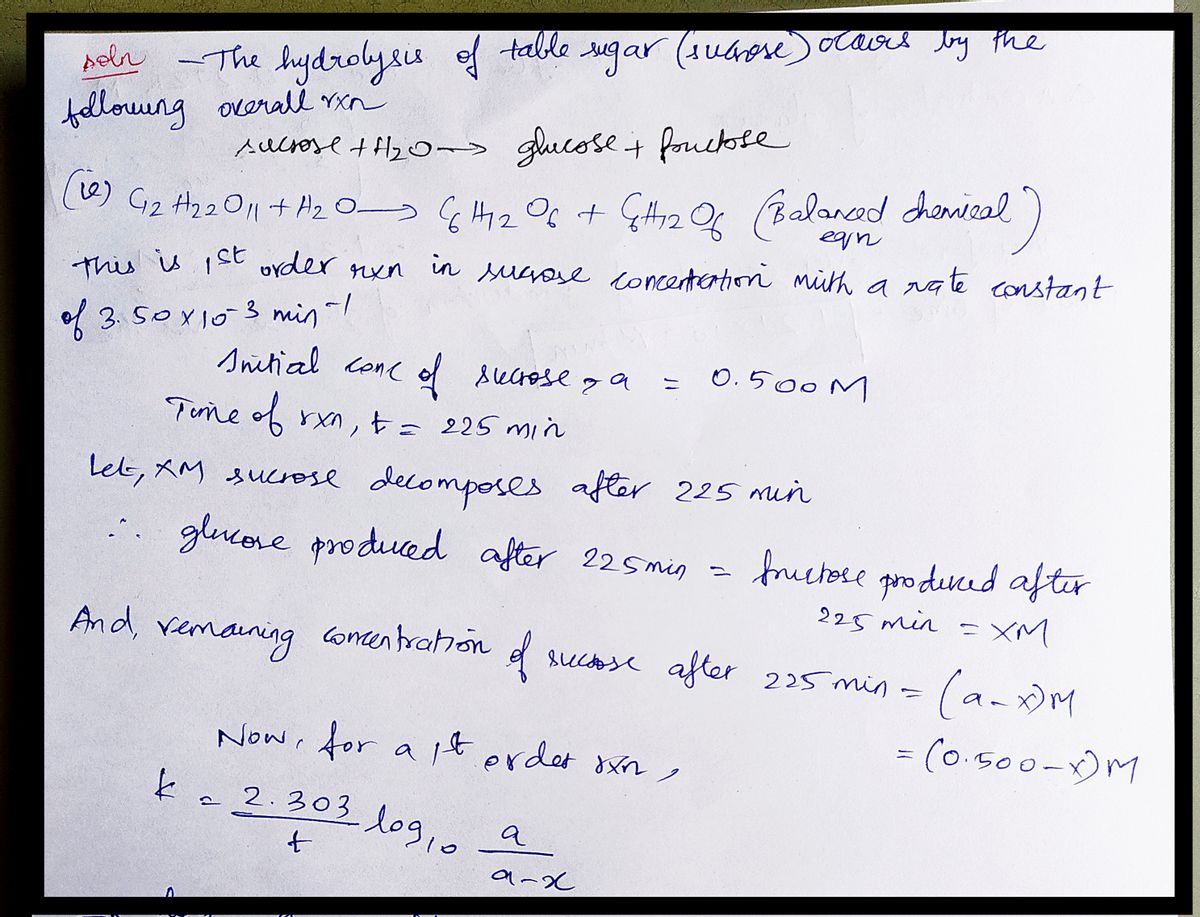 soln - The hydrolysis of table sugar (sucrose) occurs by the
following overall rxn
sucrose + H2O → glucose + fructose
(ie) C12 H22 O11 + H2 O → C6 H12 O6 + C6H12 O6 (Balanced chemical eqn)
This is 1st order rxn in sucrose concentration with a rate constant
of 3.50 x 10-3 min-1
Initial conc of sucrose, a = 0.500M
Time of rxn, t = 225 min
Let, XM sucrose decomposes after 225 min
∴ glucose produced after 225min = fructose produced after
225 min = XM
And, remaining concentration of sucrose after 225 min = (a-x)M
= (0.500-x)M
Now, for a 1st order rxn,
k = 2.303/t log10 a/a-x